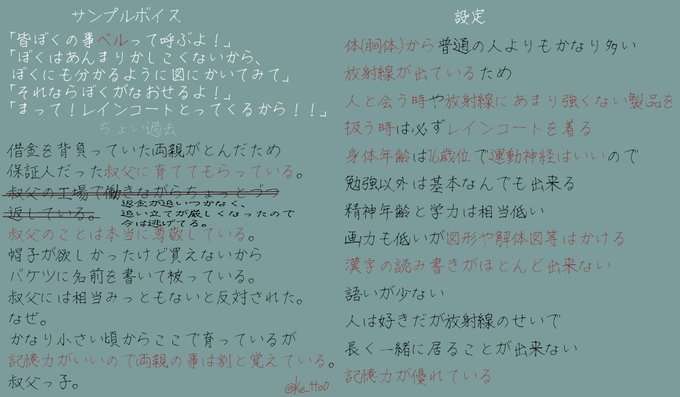 サンプルボイス
「皆ぼくの事ベルって呼ぶよ！」
「ぼくはあんまりかしこくないから、
ぼくにも分かるように図にかいてみて」
「それならぼくがなおせるよ！」
「まって！レインコートとってくるから！！」
ちょい過去
借金を背負っていた両親がとんだため
保証人だった叔父に育ててもらっている。
叔父の工場で働きながらちょっとづつ
返している。
返金が追いつかなく、
追い立てが厳しくなったので
今は逃げてる。
叔父のことは本当に尊敬している。
帽子が欲しかったけど買えないから
バケツに名前を書いて被っている。
叔父には相当みっともないと反対された。
なぜ。
かなり小さい頃からここで育っているが
記憶力がいいので両親の事は割と覚えている。
叔父っ子。
@ke_tto0
設定
体(胴体)から普通の人よりもかなり多い
放射線が出ているため
人と会う時や放射線にあまり強くない製品を
扱う時は必ずレインコートを着る
身体年齢は16歳位で運動神経はいいので
勉強以外は基本なんでも出来る
精神年齢と学力は相当低い
画力も低いが図形や解体図等はかける
漢字の読み書きがほとんど出来ない
語いが少ない
人は好きだが放射線のせいで
長く一緒に居ることが出来ない
記憶力が優れている